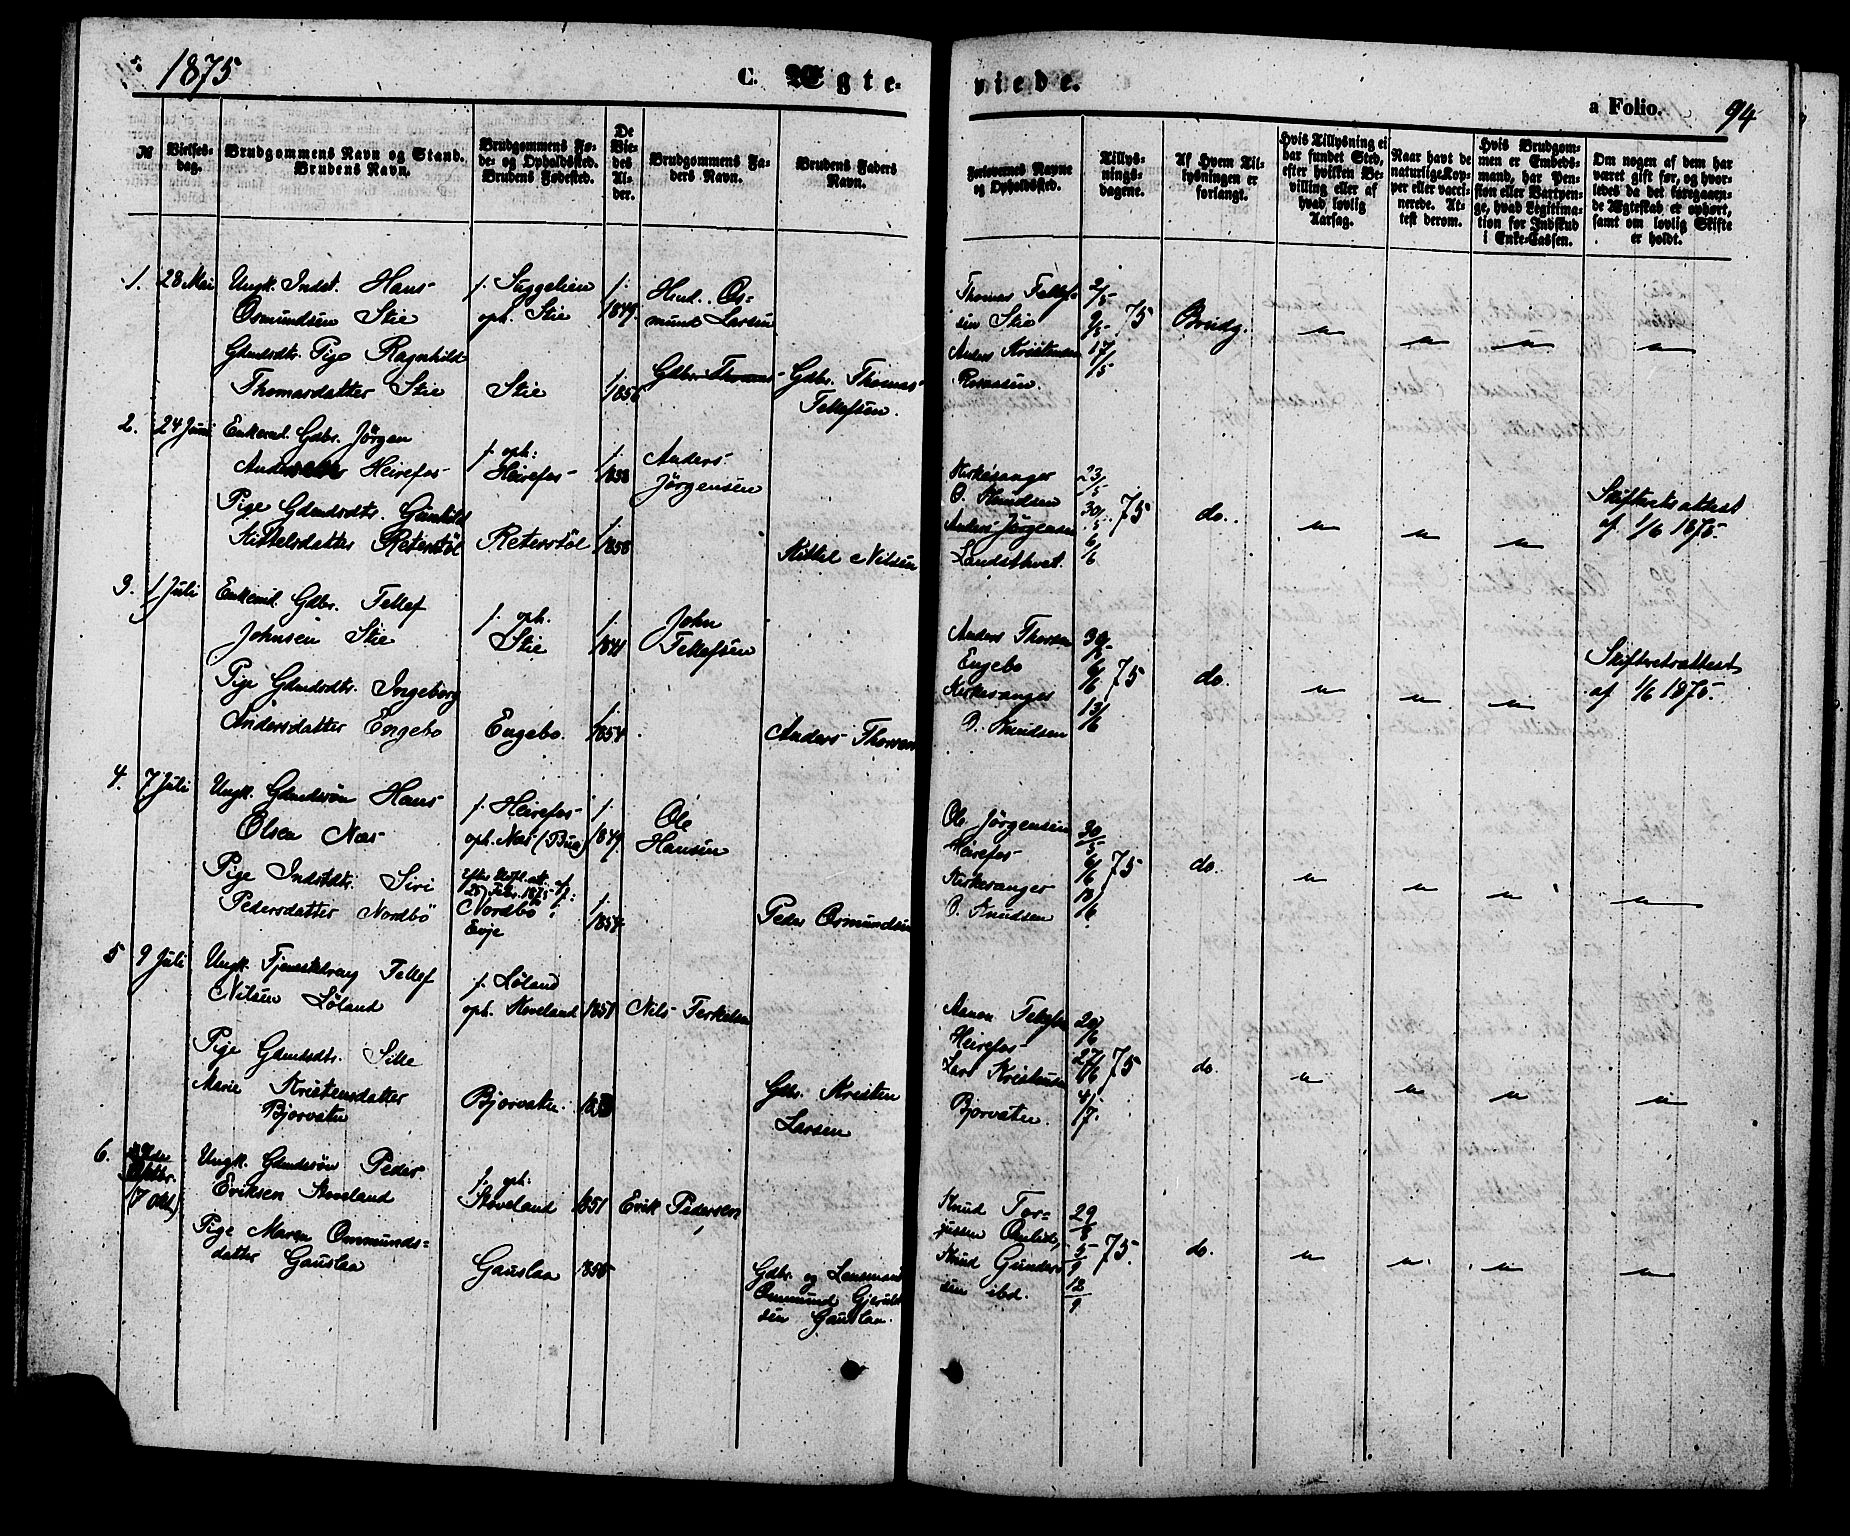 1875
C. Ægte-
viede.
a Folio. 94
№
Vielses-
dag.
Brudgommens Navn og Stand.
Brudens Navn.
Brudgommens Fø-
de- og Opholdssted.
Brudens Fødested.
De
Vie-
des
Al-
der.
Brudgommens Fa-
ders Navn.
Brudens Faders
Navn.
Forlovernes Navne
og Opholdssted.
Tillys-
nings-
dagene.
Af Hvem Til-
lysningen er
forlangt.
Hvis Tillysning ei
har fundet Sted,
efter hvilken Be-
villing eller af
hvad lovlig
Aarsag.
Naar havt de
naturlige Kop-
per eller vacci-
nerede. At-
test derom.
Hvis Brudgom-
men er Embeds-
mand, har Pen-
sion eller Vartpen-
ge, hvad Legitima-
tion for Indskud
i Enke-Cassen.
Om nogen af dem har
været gift før, og hvor-
ledes da det foregaaen-
de Ægteskab er ophørt,
samt om lovlig Skifte
er holdt.
1. 28 Mai Ungk. Indst. Hans
Osmundsen Stie
f. Siggelien
oph. Stie
1849.
Hmd. Os-
mund Larsen
Gdmdsdtr. Pige Ragnhild
Thomasdatter Stie
Stie
1856
Gdbr. Thomas
Gdbr. Thomas
Tellefsen.
Thomas Tellef-
sen Stie
Anders Kristensen
2/5
9/5 75
17/5
Brudg.
2. 24 Juni Enkemd. Gdbr. Jörgen
Andersen Heirefos
f. oph:
Heirefos
1838
Anders
Jörgensen
Pige Gdmdsdtr. Gunhild
Kittelsdatter Retterstöl
Retterstöl
1858
Kittel Nilsen
Kirkesanger
O. Knudsen
Anders Jørgensen
Landsthvet.
23/5
30/5 75
6/6
do.
Skifteretsattest
af 1/6 1875.
3. 1 Juli Enkemd. Gdbr. Tellef
Johnsen Stie
f. oph.
Stie
John
Tellefsen
Pige Gdmdsdtr. Ingeborg
Andersdatter Engebo
Engebo.
1854
Anders Thorsen
Anders Thorsen
Engebo
Kirkesanger
O. Knudsen
30/5
6/6 75
13/6
do.
Skifteretsattest
af 1/6 1875.
4. 7 Juli Ungk. Gdmdssön Hans
Olsen Næs
f. Heirefos
oph. Næs
1849.
Ole
Hansen
Pige Indstdtr. Siri
Pedersdatter Nordbö
25 Febr. 1875
Nordbö i
Evje
1854
Peder Osmundsen
Ole Jörgensen
Heirefos
Kirkesanger
O. Knudsen
30/5
6/6 75
13/6
do.
5 9 Juli Ungk. Tjenestedreng Tellef
Nilsen Løland
f. Løland
oph. Hoveland
1851
Nils Terkelsen
Pige Gdmdsdtr. Sille
Marie Kristensdatter
Bjorvatn
Bjorvatn.
Gdbr. Kristen
Larsen
Aanon Tellefsen
Heirefos
Lars Kristensen
Bjorvatn.
20/6
27/6 75
4/7.
do.
6.
(7 Okt)
Ungk. Gdmdssøn Peder
Eriksen Hoveland
f. oph:
Hoveland
1851
Erik Pedersen
Pige Maren Ommunds-
datter Gauslaa
Gauslaa
1856
Gdbr. og Lensmand
Ommund Gjeruld-
sen Gauslaa.
Knud Tor-
jussen Omlid,
Knud Gunder-
sen ibd.
29/8
5/9 75.
12/9
do.